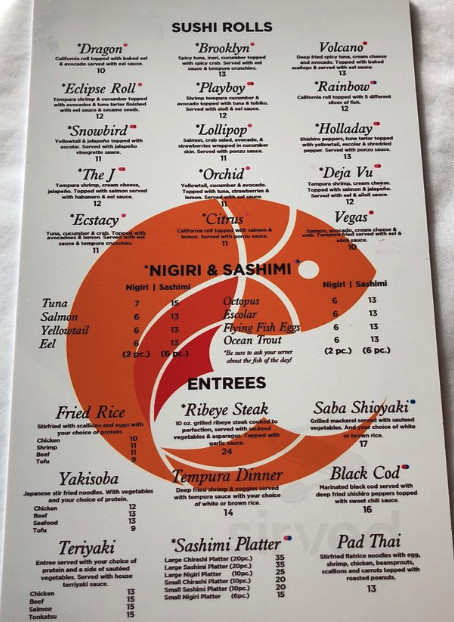 SUSHI ROLLS
*Dragon*
California roll topped with baked eel
& avocado served with eel sauce.
10
*Brooklyn*
Spicy tuna, inari, cucumber topped
with spicy crab. Served with eel
sauce & tempura crunchies.
13
Volcano*
Deep fried spicy tuna, cream cheese
and avocado. Topped with baked
scallops & served with eel sauce.
13
*Eclipse Roll*
Tempura shrimp & cucumber topped
with avocados & tuna tartar finished
with eel sauce & sesame seeds.
12
*Playboy*
Shrimp tempura cucumber &
avocado topped with tuna & tobiko.
Served with aioli & eel sauce.
12
*Rainbow*
California roll topped with 5 different
slices of fish.
12
*Snowbird
Yellowtail & jalapeño topped with
escolar. Served with jalapeño
vinegrette sauce.
11
*Lollipop*
Salmon, crab salad, avocado, &
strawberries wrapped in cucumber
skin. Served with ponzu sauce.
11
*Holladay*
Shishiro peppers, tuna tartar topped
with yellowtail, escolar & shredded
pepper. Served with ponzu sauce.
13
*The J
Tempura shrimp, cream cheese,
jalapeño. Topped with salmon served
with habanero & eel sauce.
12
*Orchid*
Yellowtail, cucumber & avocado.
Topped with tuna, strawberries &
lemon. Served with eel sauce.
11
*Deja Vu*
Tempura shrimp, cream cheese.
Topped with salmon & jalapeño.
Served with eel & aioli sauce.
12
*Ecstacy*
Tuna, cucumber & crab. Topped with
avocadoes & lemon. Served with eel
sauce & tempura crunchies.
11
*Citrus*
California roll topped with salmon &
lemon. Served with ponzu sauce.
11
Vegas*
Salmon, avocado, cream cheese &
crab. Tempura fried served with eel &
aioli sauce.
10
*NIGIRI & SASHIMI
Nigiri | Sashimi
Tuna 7 15
Salmon 6 13
Yellowtail 6 13
Eel 6 13
(2 pc.) (6 pc.)
Nigiri | Sashimi
Octopus 6 13
Escolar 6 13
Flying Fish Eggs 6 13
Ocean Trout 6 13
*Be sure to ask your server
about the fish of the day!
(2 pc.) (6 pc.)
ENTREES
Fried Rice
Stirfried with scallions and eggs with
your choice of protein
Chicken 10
Shrimp 11
Beef 11
Tofu 9
*Ribeye Steak
10 oz. grilled ribeye steak cooked to
perfection, served with sauteed
vegetables & asparagus. Topped with
garlic sauce.
24
Saba Shioyaki
Grilled mackerel served with sauteed
vegetables. And your choice of white
or brown rice.
17
Yakisoba
Japanese stir fried noodles. With vegetables
and your choice of protein.
Chicken 12
Beef 13
Seafood 13
Tofu 9
Tempura Dinner
Deep fried shrimp & veggies served
with tempura sauce with your choice
of white or brown rice.
14
Black Cod
Marinated black cod served with
deep fried shishiro peppers topped
with sweet chili sauce.
16
Teriyaki
Entree served with your choice of
protein and a side of sautéed
vegetables. Served with house
teriyaki sauce.
Chicken 13
Beef 15
Salmon 15
Tonkatsu 15
*Sashimi Platter
Large Chirashi Platter (20pc.) 35
Large Sashimi Platter (20pc.) 35
Large Nigiri Platter (10pc.) 25
Small Chirashi Platter (10pc.) 20
Small Sashimi Platter (10pc.) 20
Small Nigiri Platter (6pc.) 15
Pad Thai
Stirfried flatrice noodles with egg,
shrimp, chicken, beansprouts,
scallions and carrots topped with
roasted peanuts.
13
sirved